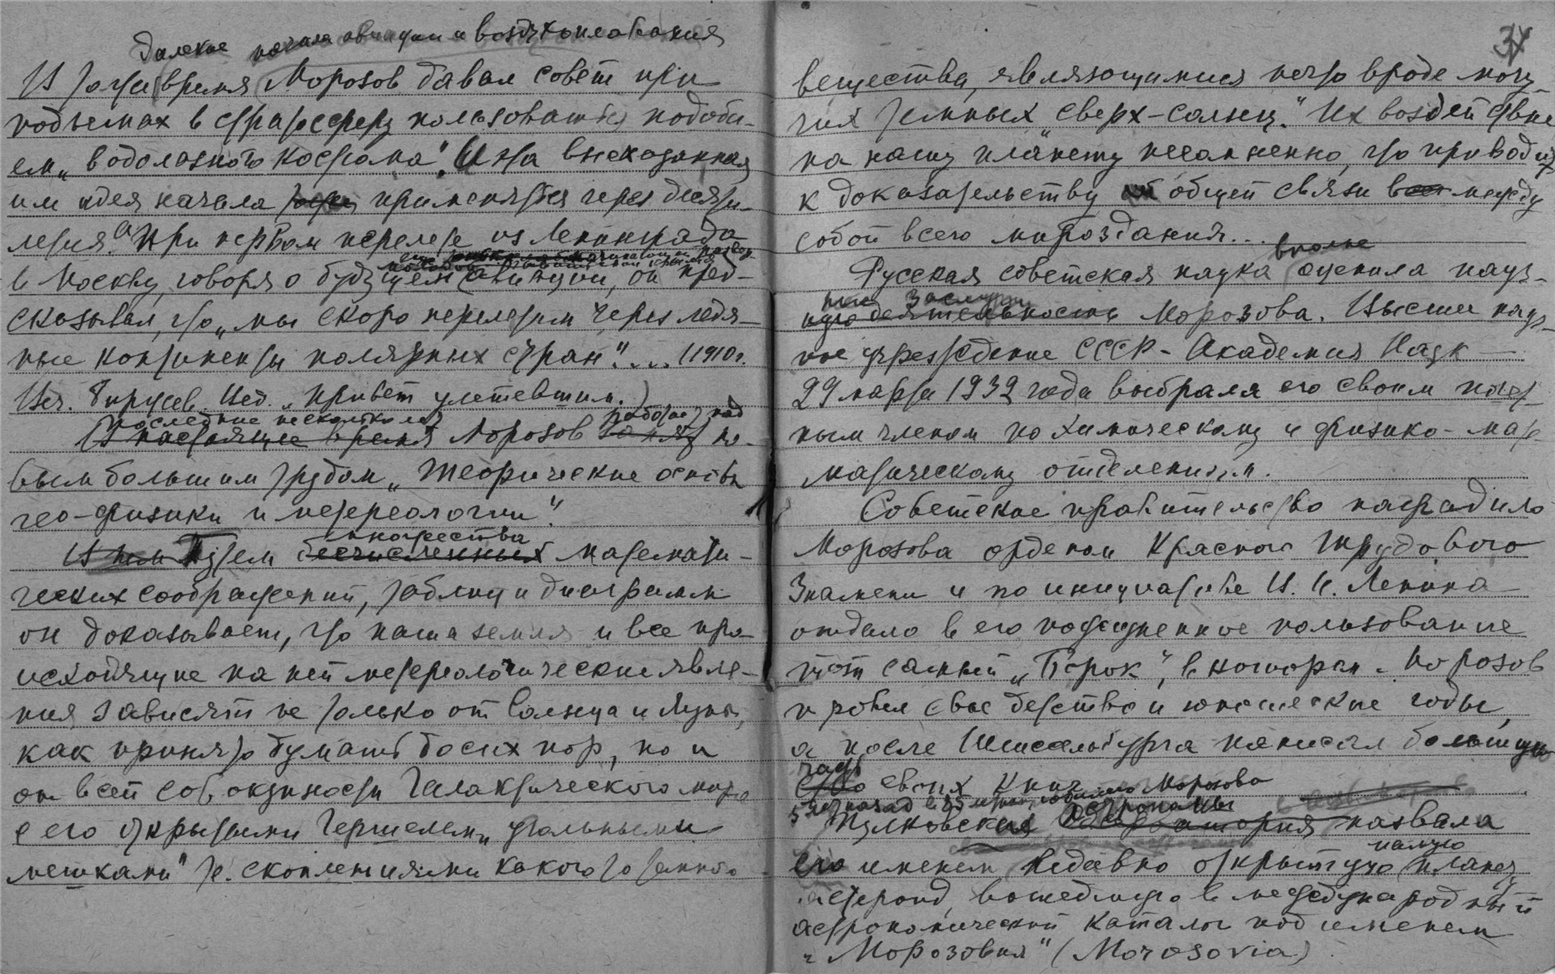 далекое начало авиации и воздухоплавания
В то же время Морозов давал совет при
подъемах в стратосферу пользоваться подоби-
ем „водолазного костюма“. И эта высказанная
им идея начала применяться через десяти-
летия. А при первом перелете из Ленинграда
в Москву, говоря о будущем авиации, он пред-
сказывал, что „мы скоро перелетим через ледя-
ные континенты полярных стран“.... (1910 г.
Изд. „Привет улетевшим.)
Последние несколько лет работает над
В настоящее время Морозов занят но-
вым большим трудом „Теорические основы
гео-физики и метереологии“.
множества
В нем Путем бесчисленных математи-
ческих соображений, таблиц и диаграмм
он доказывает, что наша земля и все про-
исходящие на ней метереологические явле-
ния зависят не только от Солнца и Луны,
как принято думать до сих пор, но и
от всей совокупности Галактического мира
с его открытыми Гершелем „угольными
мешками“ т.е. скоплениями какого то темного
34
вещества, являющимися нечто вроде могу-
чих темных „сверх-солнц.“ Их воздействие
на нашу планету несомненно, что приводит
к доказательству общей связи между
собой всего мироздания...
вполне
Русская советская наука оценила науч-
ные заслуги
ную деятельность Морозова. Высшее науч-
ное учреждение СССР - Академия Наук —
29 марта 1932 года выбрала его своим почет-
ным членом по химическому и физико-мате-
матическому отделениям.
Советское правительство наградило
Морозова орденом Красного Трудового
Знамени и по инициативе В. И. Ленина
отдало в его пожизненное пользование
тот самый „Борок“, в котором Морозов
провел свое детство и юношеские годы,
а после Шлиссельбурга написал большую
часть
своих книг.
5 лет назад в 85 летие Морозова
астрономы
Пулковская обсерватория назвала
малую
его именем недавно открытую планету
астероид, вошедшую в международный
астрономический каталог под именем
„Морозовия“ (Morosovia)